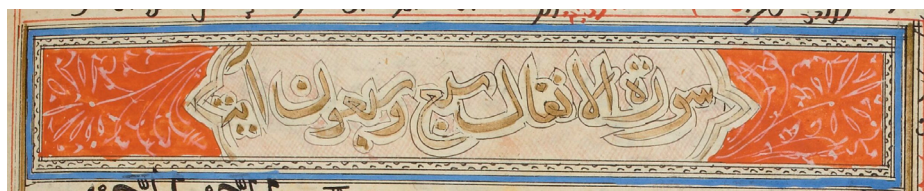 سورة الانفال سبع وسبعون آية